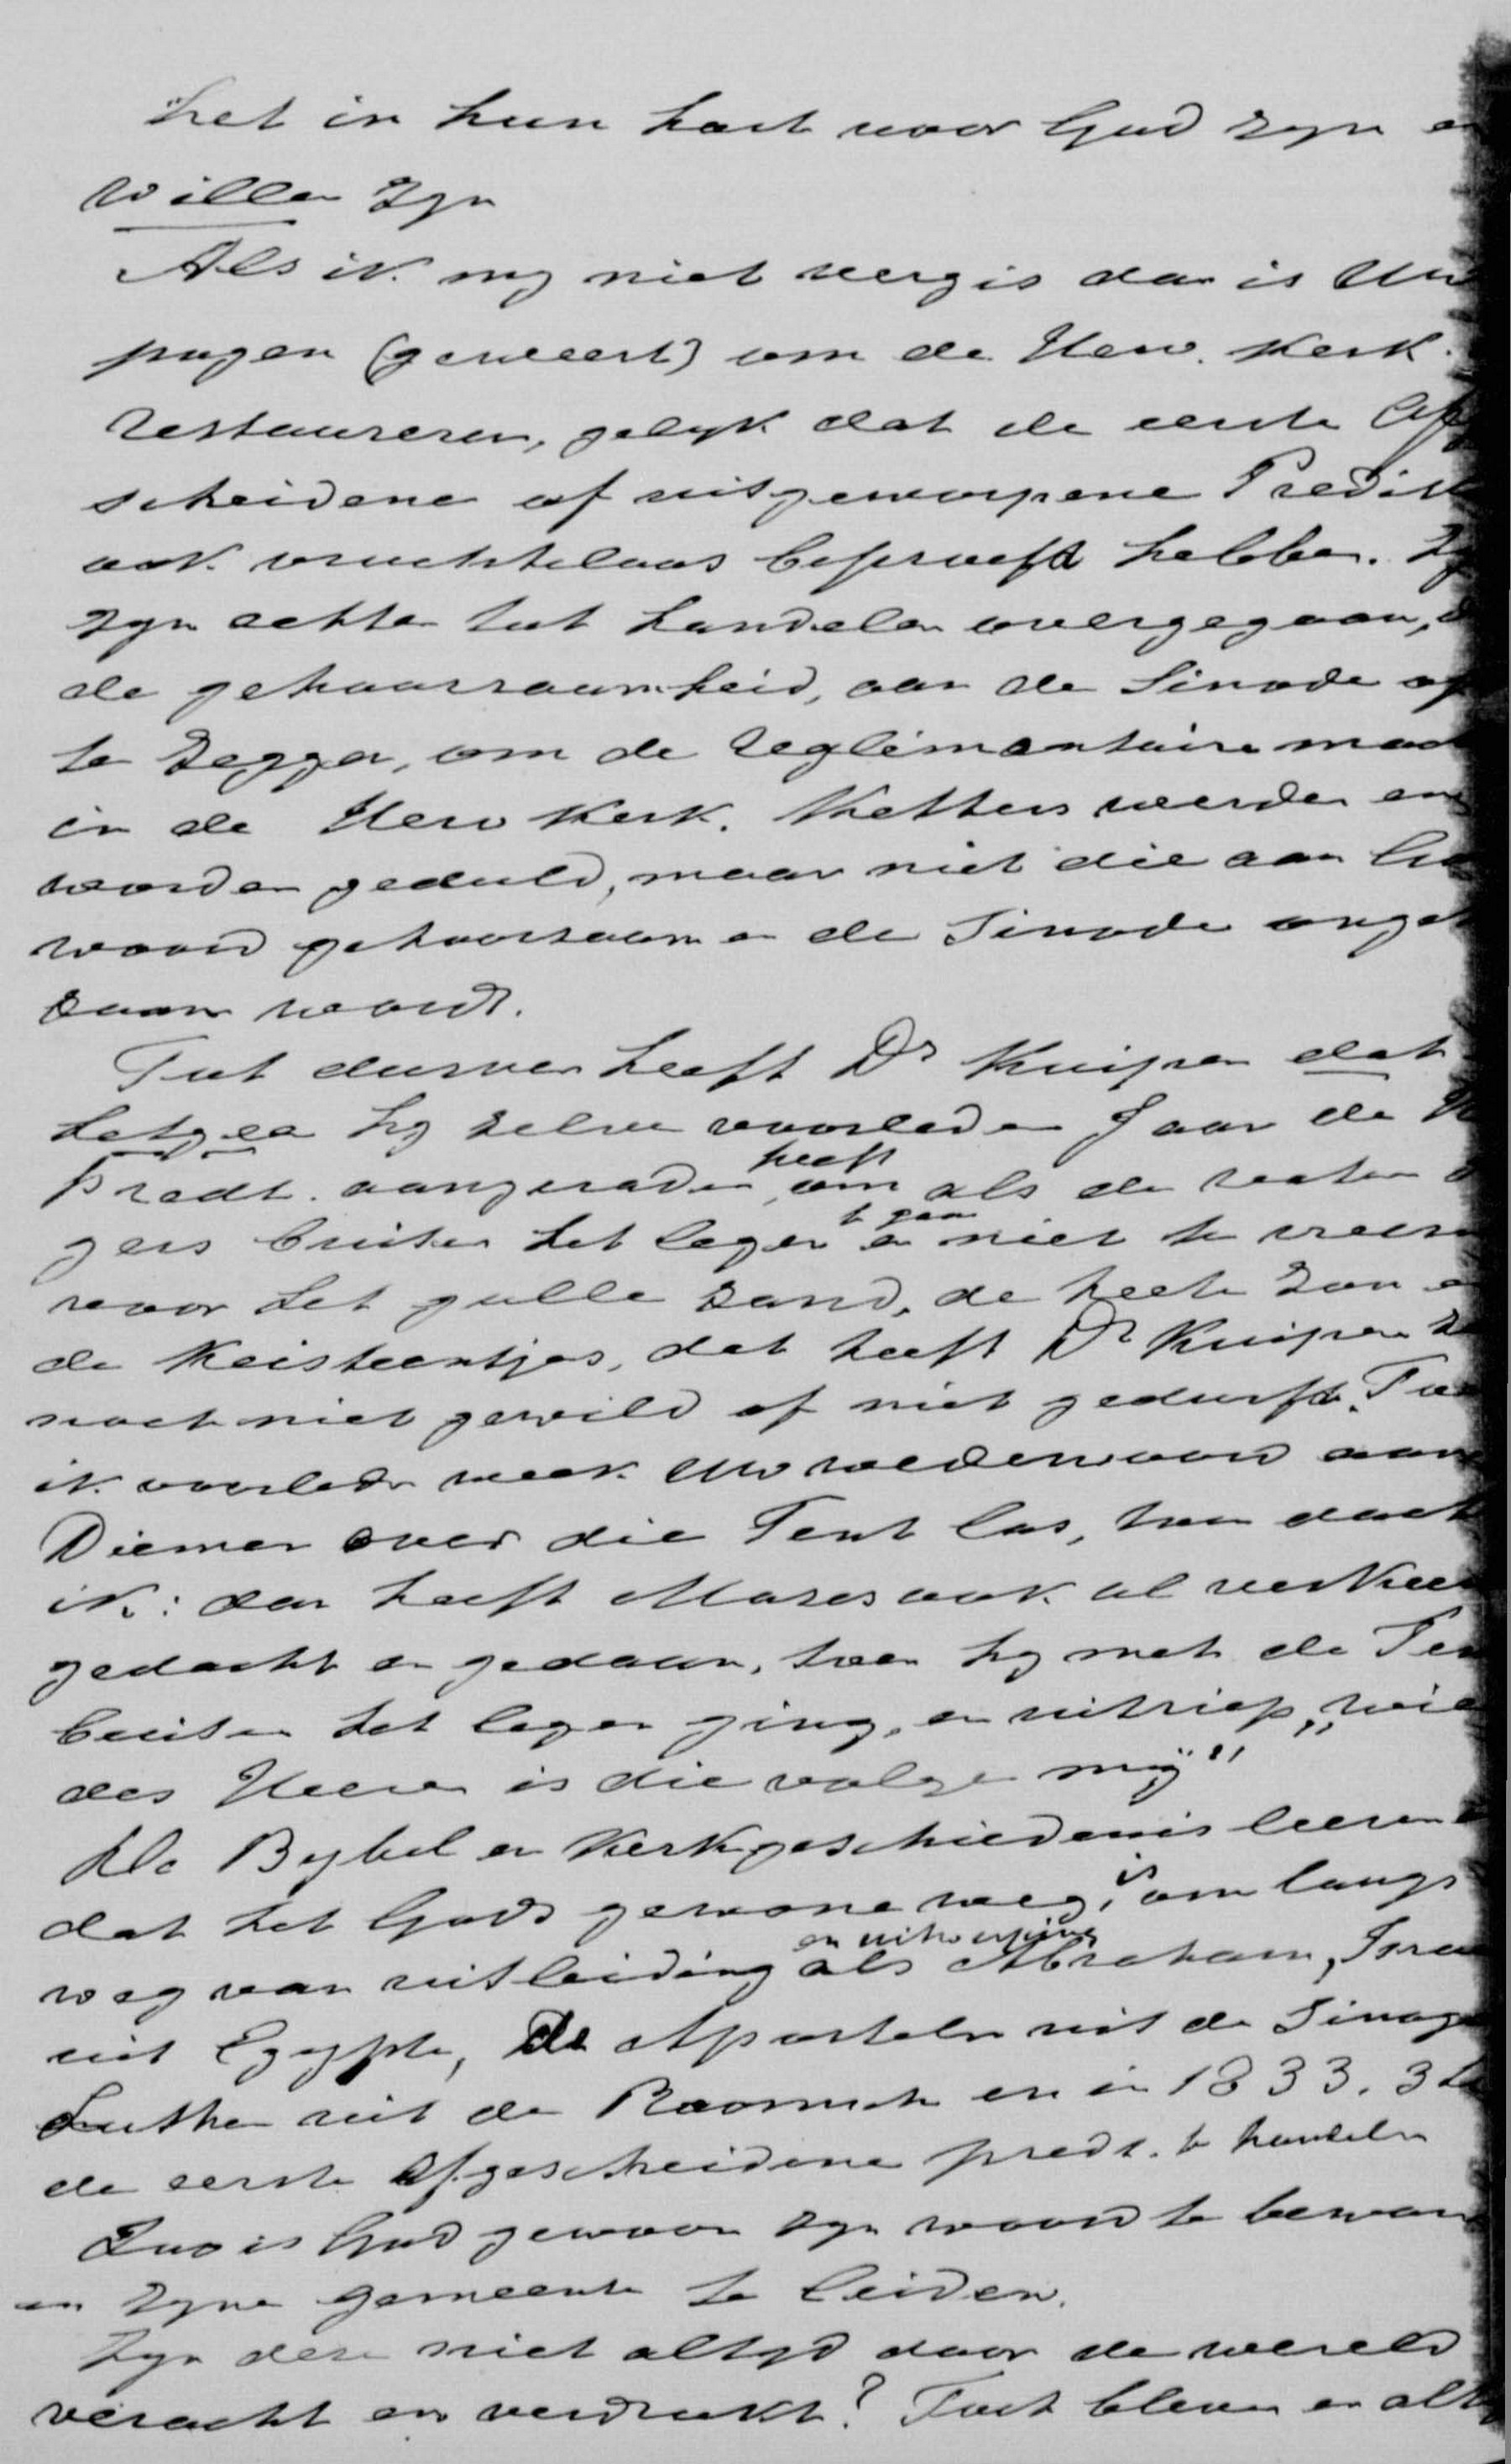 het in hun hart voor God zyn e
willen zyn
Als ik my niet vergis dan is Uw
pogen (geweest) om de Herv. Kerk.
restaureren, gelyk dat de eerste Af
scheidene of uitgeworpene Predik
ook vruchteloos beproefd hebben. Zy
zyn echter tot handelen overgegaan,
de gehoorzaamheid, aan de Sinode op
te zeggen, om de reglementaire mac
in de Herv Kerk. Ketters werden en
worden geduld, maar niet die aan Go
woord gehoorzaam en de Sinode ongeh
zaam wordt.
Tot dusver heeft Dr Kuiper dat
hetgeen hy zelve voorleden Jaar de
Predt. aangeraden heeft, om als de
gers buiten het leger te gaan en niet te vreezen
voor het gulle zand, de heete zon e
de Keisteentjes, dat heeft Dr Kuiper
noch niet gewild of niet gedurfd. Toe
ik voorleden week Uw wederwoord aan
Diemer over die Tent las, toen dacht
ik: dan heeft Mozes ook al verkeer
gedacht en gedaan, toen hy met de Ten
buiten het leger ging, en uitriep „wie
des Heeren is die volge my"
De Bybel en Kerkgeschiedenis leeren
dat het Gods gewone weg is, om langs
weg van uitleiding en uitwerping als Abraham, Isra
uit Egypte, De Apostelen uit de Sinag
Luther uit de Roomsche en in 1833. 34
de eerste afgescheidene predt. te handelen
Zoo is God gewoon zyn woord te bewaren
en zyne gemeente te leiden.
Zyn deze niet altyd door de wereld
veracht en verdrukt? Toch bleven er alt